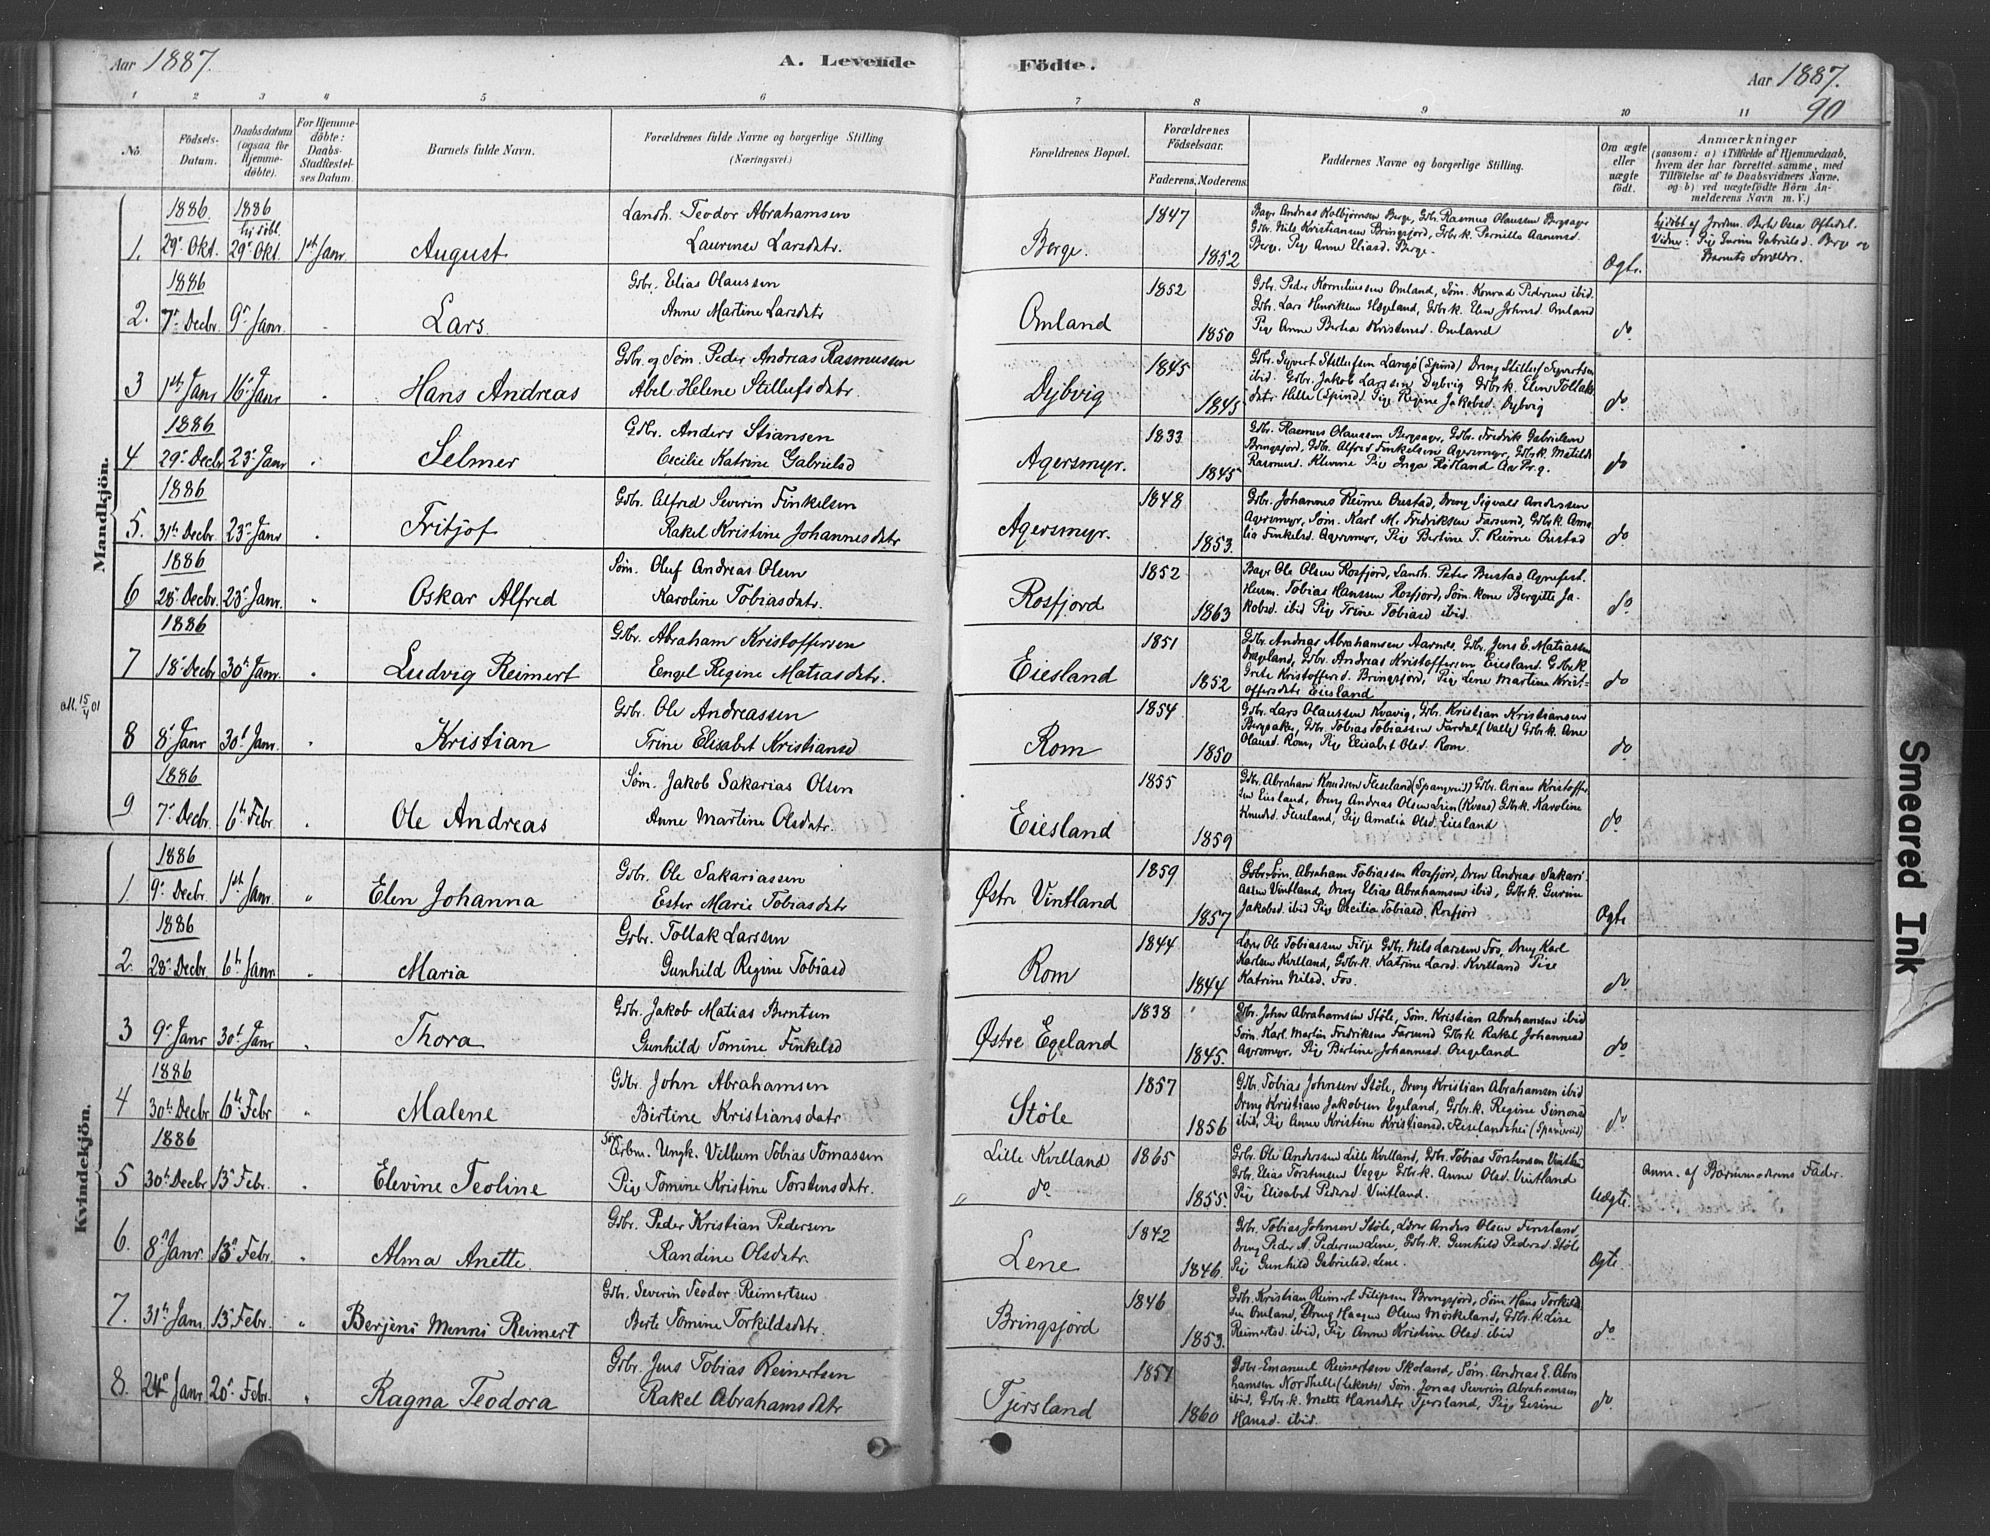 Aar 1887.
A. Levende Födte.
Aar 1887.
90
1 2 3 4 5 6 7 8 9 10 11
No.
Födsels-Datum.
Daabsdatum (ogsaa for Hjemme-döbte).
For Hjemme-döbte: Daabs-Stadfæstel-ses Datum.
Barnets fulde Navn.
Forældrenes fulde Navne og borgerlige Stilling (Næringsvei.)
Forældrenes Bopæl.
Forældrenes Födselsaar.
Faderens. Moderens.
Faddernes Navne og borgerlige Stilling.
Om ægte eller uægte födt.
Anmærkninger
(saasom: a) i Tilfælde af Hjemmedaab,
hvem der har forrettet samme, med
Tilföielse af to Daabsvidners Navne,
og b) ved uægtefödte Börn An-
melderens Navn m. V.)
Mandkjön.
1. 1886 29. Okt. 1886 hj.döbt 29. Okt. 1st Janr. August
Landh. Teodor Abrahamsen
Laurense Larsdatr.
Berge. 1847 1852
Gbr. Nils Kristiansen Bringsjord, Gbrk. Pernille
Berge. Pig Anne Eliasd. Berge.
Ægte.
Barnets Forældre.
2. 1886 7. Decbr. 9. Janr. Lars
Gbr. Elias Olaussen
Anne Martine Larsdatr
Omland 1852 1850
Gbr. Peder Korneliussen Omland, Søm. Konrad Pedersen ibid.
Gbr. Lars Henriksen Høgeland, Gbrk. Elen Johnsd. Omland
Pig Anne Bertea Omland
do
3 1st Janr 16. Janr Hans Andreas
Gbr. og Søm. Peder Andreas Rasmussen
Abel Helene Stillufsdatr.
Dybvig 1845 1845
Gbr. Sigvert Stillufsen Langø (Spind) Dreng Stilluf Sigvertsen
ibid. Gbr. Jakob Larssen Dybvig Gbrk. Elen Tollaks-
datr. Hille (Spind) Pig Regine Jakobsd. Dybvig
do
4 1886 29. Decbr 23. Janr Selmer
Gbr. Anders Stiansen
Cecilie Katrine Gabrielsd
Agersmyr. 1833 1845
Gbr. Rasmus Olaussen Bergsager, Gbr. Fredrik Gabrielsen
Bringsjord, Gbr. Alfred Finkelsen Agersmyr, Gbrk. Matilde
Rasmusd. Pig Inga
do
5. 1886 31th Decbr. 23. Janr Fritjof
Gbr. Alfred Severin Finkelsen
Rakel Kristine Johannesdatr
Agersmyr. 1848 1853.
Gbr. Johannes Reime Onestad, Dreng Sigvald Anderssen
Agersmyr, Søm. Karl M. Fredriksen Farsund, Gbrk. Ama-
lia Finkelsd. Agersmyr, Pig Bertine T. Reime Onestad
do
6 1886 28. Decbr. 23. Janr. Oskar Alfred
Søm. Oluf Andreas Olsen
Karoline Tobiasdatr.
Rosfjord 1852 1863
Ole Olsen Rosfjord, Landh. Peter Bustad Agnefest.
Tobias Hanssen Rosfjord, Søm. kone Bergitte Ja-
kobsd. ibid Pig Trine Tobiasd ibid.
do
7 1886 18. Decbr 30th Janr. Ludvig Reimert
Gbr. Abraham Kristoffersen
Engel Regine Matiasdatr.
Eiesland 1851 1852
Gbr. Andreas Abrahamsen Aarnes, Gbr. Jens E. Matiassen
Drageland, Gbr. Andreas Kristoffersen Eiesland Gbrk.
Grete Kristoffersd. Bringsjord, Pig Lene Martine Krist-
offersdatr Eiesland
do
att. 15/4 01
8 8. Janr 30t Janr. Kristian
Gbr. Ole Andreassen
Trine Elisabet Kristiansd
Rom 1854 1850
Gbr. Lars Olaussen Kvavig, Gbr. Kristian Kristiansen
Bergsaker, Gbr. Tobias Tobiassen Fardal (Valle) Gbrk. Ane
Olausd. Rom, Pig Elisabet Olsd. Rom.
do
9 1886 7. Decbr. 6th Febr. Ole Andreas
Søm. Jakob Sakarias Olsen
Anne Martine Olsdatr.
Eiesland 1855 1859
Gbr. Abraham Knudsen Fleseland (Spangreid) Gbr. Arian Kristoffer-
sen Eiesland, Dreng Andreas Olsen (Kvaas) Gbrk. Karoline
Knudsd. Fleseland, Pig Amalia Olsd. Eiesland
do
Kvindekjön.
1. 1886 9. Decbr. 1st Janr. " Elen Johanna
Gbr. Ole Sakariassen
Ester Marie Tobiasdatr
Østre Vintland 1859 1857
Gbr. Søm. Abraham Tobiassen Rosfjord, Dren Andreas Sakari-
assen Vintland, Dreng Elias Abrahamsen ibid, Gbrk. Gurine
Jakobsd. ibid Pig Cecilia Tobiasd. Rosfjord
Ægte
2. 1886 28. Decbr. 6th Janr. Maria
Gbr. Tollak Larssen
Gunhild Regine Tobiasd
Rom 1844 1844
Ole Tobiassen Gbr. Nils Larssen Fos, Dreng Karl
Karlsen Kvilland, Gbrk. Katrine Larsd. Kvilland Pige
Katrine Nilsd. Fos.
do
3 9. Janr 30t Janr Thora
Gbr. Jakob Matias Berntsen
Gunhild Tomine Finkelsd
Østre Egeland 1838 1845.
Gbr. John Abrahamsen Støle, Søm. Kristian Abrahamsen ibid
Søm. Karl Martin Fredriksen Farsund Gbrk. Rakel Johannesd
Agersmyr, Pig Bertine Johannesd.
do
4 1886 30th Decbr 6th Febr " Malene
Gbr. John Abrahamsen
Birtine Kristiansdatr
Støle 1857 1856
Gbr. Tobias Johnsen Støle, Dreng Kristian Abrahamsen ibid
Dreng Kristian Jakobsen Egeland, Gbrk. Regine Simonsd
ibid, Pig Anne Kristine Kristiansd. Fleselandshei (Spangreid)
do
5 1886 30th Decbr 13. Febr. Elevine Teoline
Ungk. Villum Tobias Tomassen
Pig Tomine Kristine Torstensdatr.
Lille Kvilland
" do 1865 1855.
Gbr. Ole Anderssen Lille Kvilland, Gbr. Tobias Torstensen Vintland
Gbr. Elias Torstensen Vegge Gbrk. Anne Olsd. Vintland
Pig Elisabet Pedersd. Vintland.
Uægte.
Anm. af Barnemoderens Fader.
6. 8. Janr. 13. Febr. Alma Anette
Gbr. Peder Kristian Pedersen
Randine Olsdatr.
Lene 1842 1846.
Gbr. Tobias Johnsen Støle, Lærer Anders Olsen Finsland,
Dreng Peder A. Pedersen Lene, Gbrk. Gunhild Pedersd. Støle
Pig Gunhild Gabrielsd. Lene.
Ægte.
7. 31th Janr. 13. Febr. " Berjeni Menni Reimert
Gbr. Severin Teodor Reimertsen
Berte Tomine Torkildsdatr.
Bringsjord 1846 1853.
Gbr. Kristian Reimert Filipsen Bringsjord, Søm Hans Torkild-
sen Omland, Dreng Haagen Olsen Møskeland, Gbrk. Lise
Reimertsd. ibid, Pig Anne Kristine Olsd. ibid
do
8. 24. Janr 20. Febr. " Ragna Teodora
Gbr. Jens Tobias Reinertsen
Rakel Abrahamsdatr
Tjersland 1857 1860
Gbr. Emanuel Reinertsen Skoland, Søm. Andreas E. Abra-
hamsen Nordhelle (Leknes) Søm. Jonas Severin Abrahamsen
ibid, Gbrk. Mette Hansdatr Tjersland, Pige Gesine
Hansd. ibid.
do
Smeared Ink